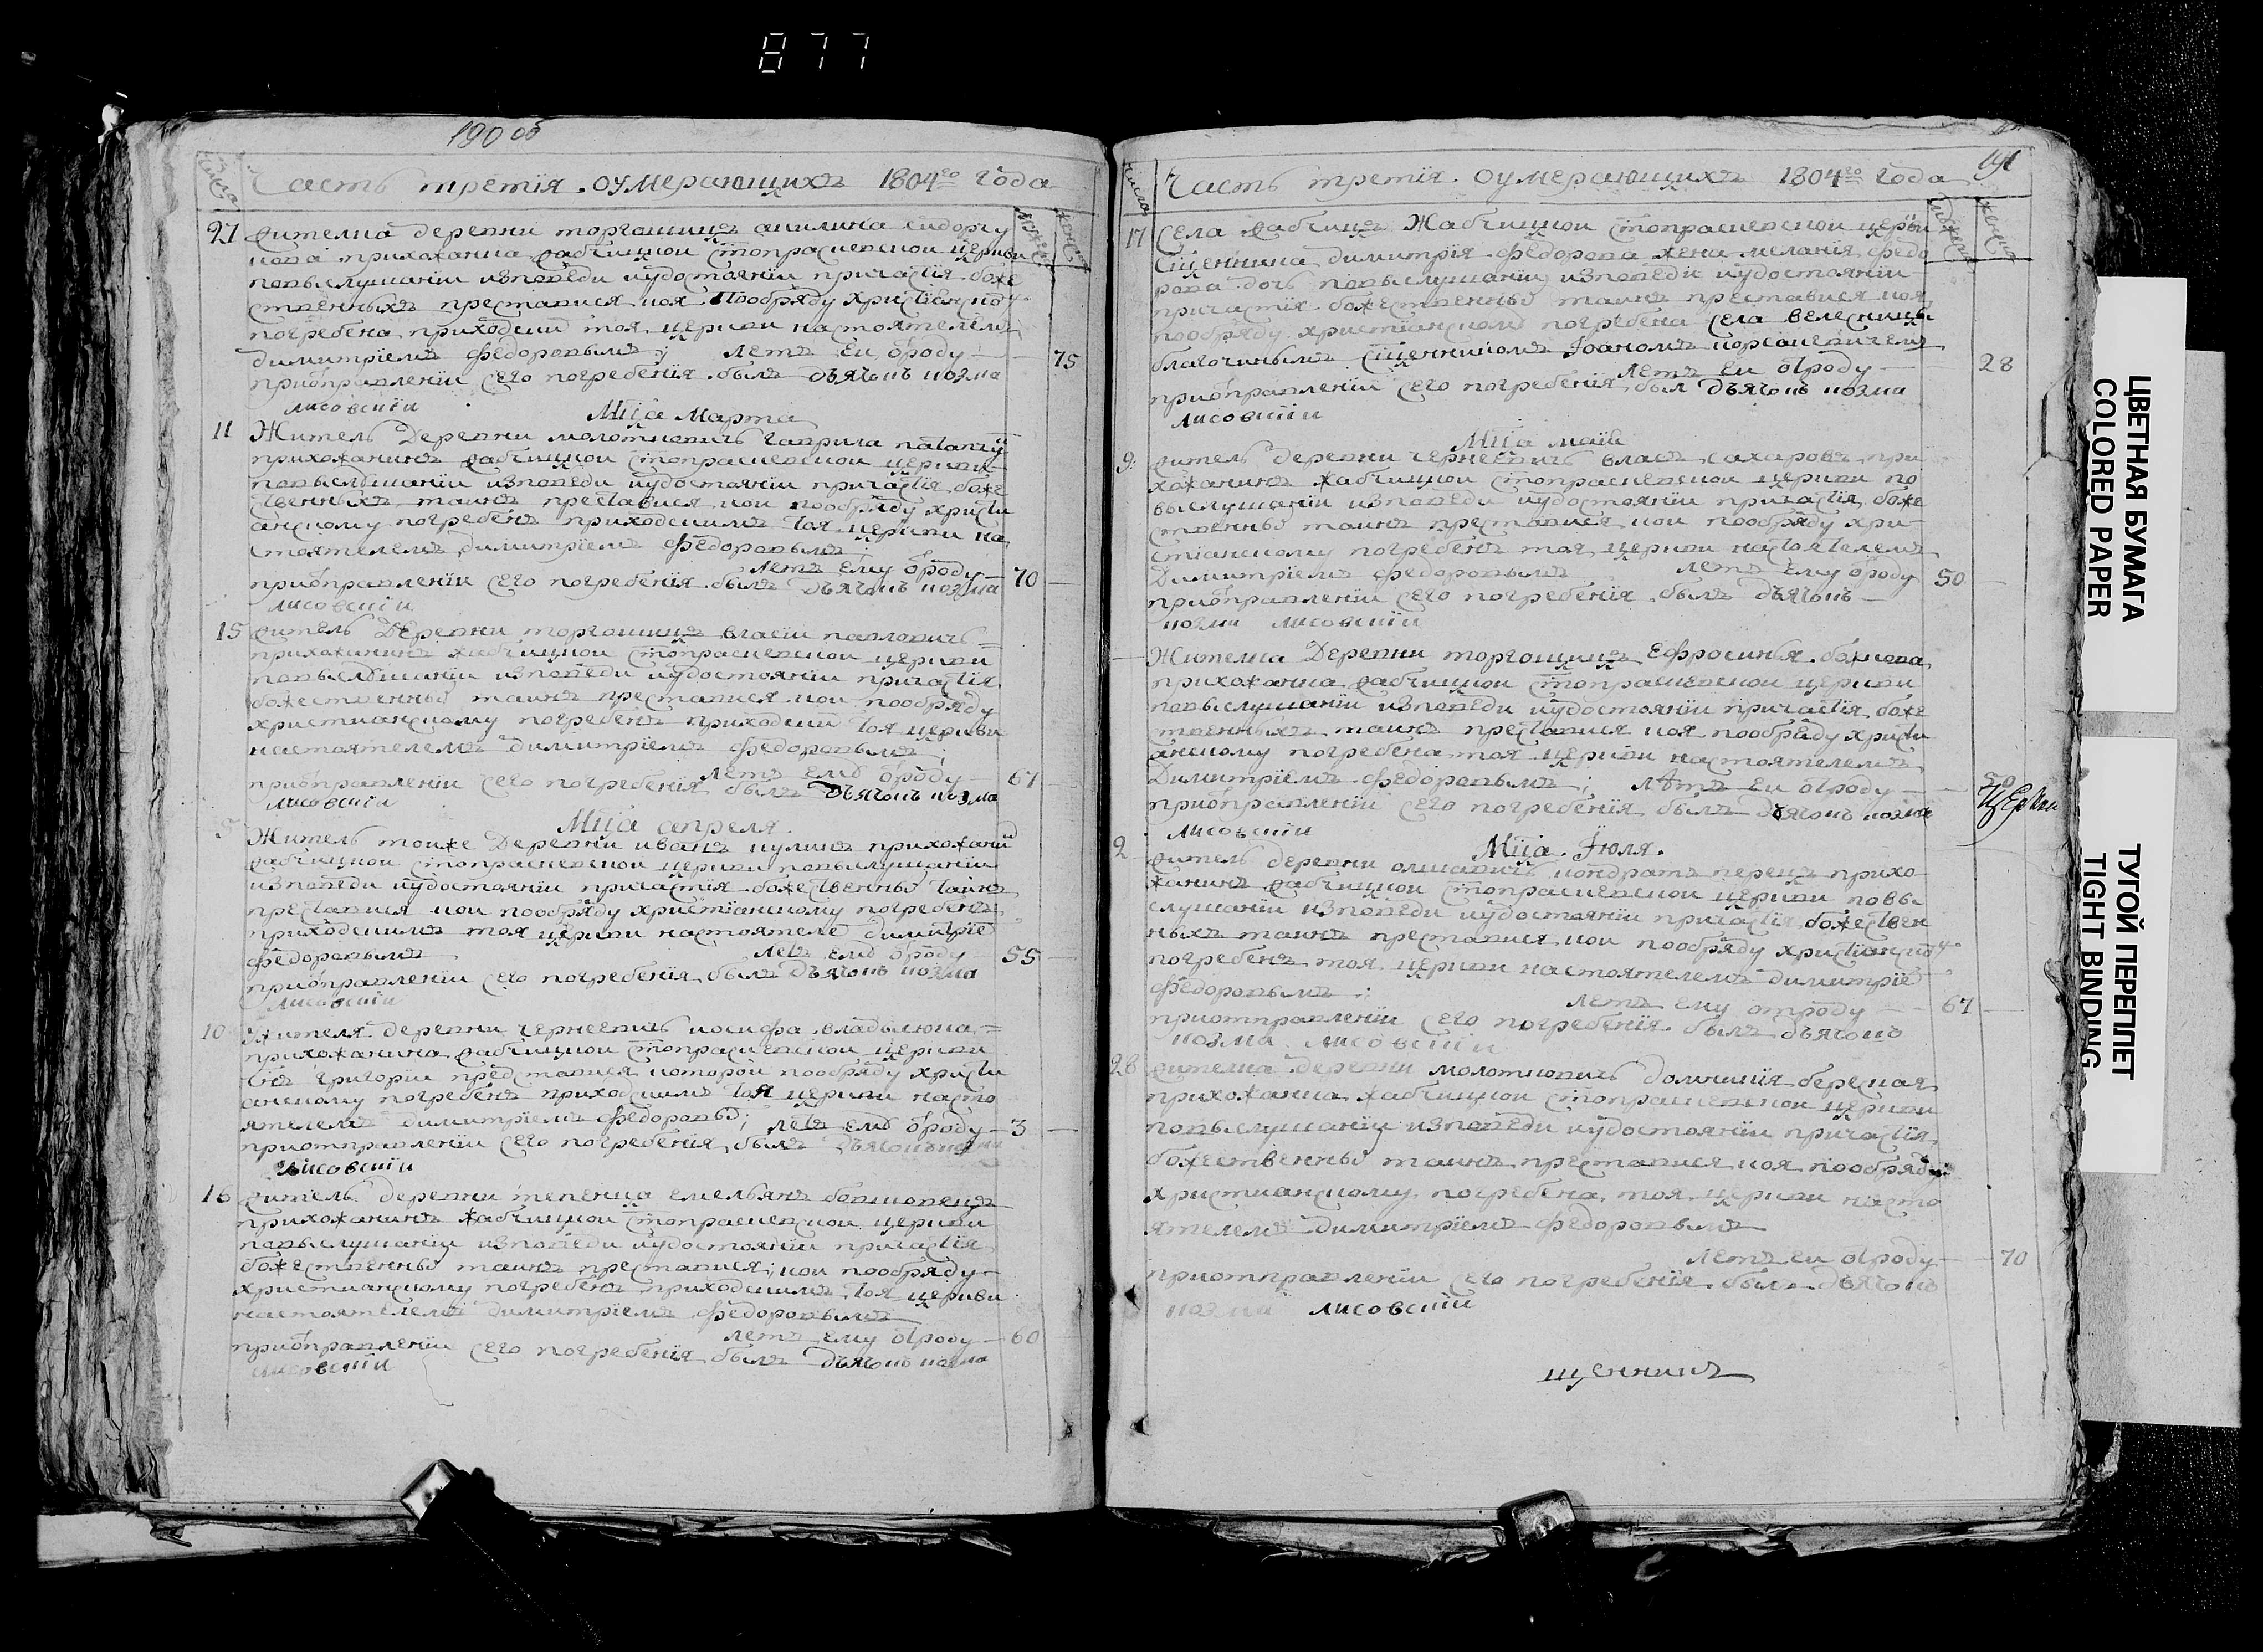 877
190 об
Число
Часть третія оумерающихъ 1804го года
27 Жителка деревни торгошицъ акилина сидорчу
кова прихожанка жабчицкои стопраскевскои церкви
повыслушаніи изповеди иудостояніи причастія боже
ственныхъ преставися коя пообряду християнску
погребена приходскимъ тоя церкви настоятелемъ
димитріемъ федоровымъ; летъ еи ѿроду 75
приѿправленіи сего погребенія былъ дъячокъ козма
лисовскіи
Мца Марта
11 Житель Деревни молотковичъ гаврила
прихожанинъ жабчицкои стопраскевскои церкви
повыслушаніи изповеди иудостояніи причастія боже
ственныхъ таинъ преставися кои пообряду христи
анскому погребенъ приходскимъ тоя церкви на
стоятелемъ димитріемъ федоровымъ
летъ ему ѿроду 70
приѿправленіи сего погребенія былъ дъячокъ козма
лисовскіи
15 Житель Деревни торгошицъ власіи павловичъ
прихожанинъ жабчицкои стопраскевскои церкви
повыслушаніи изповеди иудостояніи причастія
божественны таинъ преставися кои пообряду
християнскому погребенъ приходски тоя церкви
настоятелемъ димитріемъ федоровымъ;
летъ ему ѿроду 61
приѿправленіи сего погребенія былъ дъячокъ козма
лисовскіи
Мца апреля
5 Житель тоиже Деревни иванъ куликъ прихожани
жабчицкои стопраскевскои церкви повыслушаніи
изповеди иудостояніи причастія божественны таинъ
преставися кои пообряду християнскому погребенъ
приходскимъ тоя церкви настоятеле димитріе
федоровымъ летъ ему ѿроду 55
приѿправленіи сего погребенія былъ дъячокъ козма
лисовскіи
10 Жителя деревни чернеевичъ иосифа
прихожанина жабчицкои стопраскевскои церкви
снъ григории представися которои пообряду христи
анскому погребенъ приходскимъ тоя церкви насто
ятелемъ димитріемъ федоровы; летъ ему ѿроду 3
приотправленіи сего погребенія былъ дъячокъ
лисовскіи
16 Житель деревни тепенца емельянъ
прихожанинъ жабчицкои стопраскевскои церкви
повыслушаніи изповеди иудостояніи причастія
божественны таинъ преставися; кои пообряду
християнскому погребенъ приходскимъ тоя церкви
настоятелемъ димитріемъ федоровымъ
летъ ему ѿроду 60
приѿправленіи сего погребенія былъ дъячокъ козма
лисовскіи
191
Число
Часть третія оумерающихъ 1804го года
17 Села жабчицъ Жабчицкои стопраскевскои церкви
сщенника димитрія федорова жена меланія федо
рова дочь повыслушаніи изповеди иудостояніи
причастія божественны таинъ преставися коя
пообряду християнскому погребена села велесницы
благочиннымъ сщенникомъ Іоаномъ
летъ еи ѿроду 28
приѿправленіи сего погребенія был дъячокъ козма
лисовскіи
Мца маія
9 Житель деревни чернеевичъ власъ сахаровъ при
хожанинъ жабчицкои стопраскевскои церкви по
выслушаніи изповеди иудостояніи причастія боже
ственны таинъ преставися кои пообряду хри
стіанскому погребенъ тоя церкви настоятелемъ
Димитріемъ федоровымъ летъ ему ѿроду 50
приѿправленіи сего погребенія былъ дъячокъ
козма лисовскіи
Жителка Деревни торгошицъ Ефросинья
прихожанка жабчицкои стопраскевскои церкви
повыслушаніи изповеди иудостояніи причастія боже
ственныхъ таинъ преставися коя пообряду христи
анскому погребена тоя церкви настоятелемъ
Димитріемъ федоровымъ; летъ еи ѿроду 50
приѿправленіи сего погребенія былъ дъячокъ козма
лисовскіи
Церкви
Мца Іюля.
2 Житель деревни кондратъ перецъ прихо
жанинъ жабчицкои стопраскевскои церкви повы
слушаніи изповеди иудостояніи причастія божествен
ныхъ таинъ преставися кои пообряду християнско
погребенъ тоя церкви настоятелемъ димитріе
федоровымъ;
летъ ему отроду 67
приотправленіи сего погребенія былъ дъячокъ
козма лисовскіи
28 Жителка деревни молотковичъ домникія
прихожанка жабчицкои стопраскевскои церкви
повыслушаніи изповеди иудостояніи причастія
божественны таинъ преставися коя пообряду
християнскому погребена тоя церкви насто
ятелемъ димитріемъ федоровымъ
летъ еи ѿроду 70
приотправленіи сего погребенія былъ дъячокъ
козма лисовскіи
щенникъ
ЦВЕТНАЯ БУМАГА
COLORED PAPER
ТУГОЙ ПЕРЕПЛЕТ
TIGHT BINDING